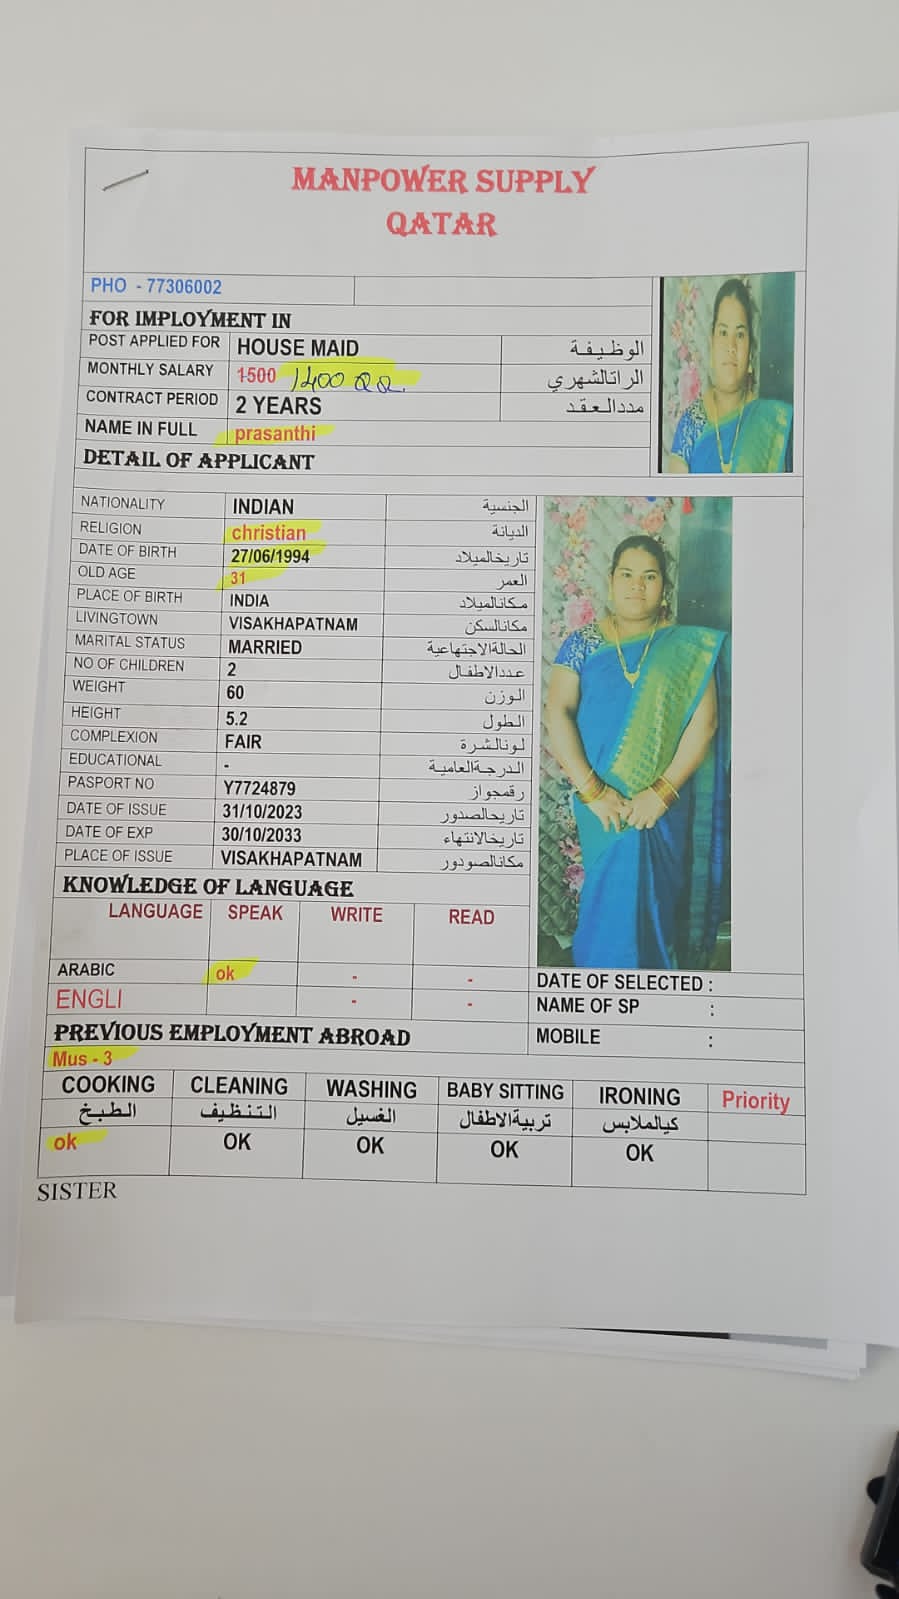 MANPOWER SUPPLY
QATAR
PHO - 77306002
FOR IMPLOYMENT IN
POST APPLIED FOR HOUSE MAID الوظيفة
MONTHLY SALARY 1500 1400 QR. الراتالشهري
CONTRACT PERIOD 2 YEARS مددالعقد
NAME IN FULL prasanthi
DETAIL OF APPLICANT
NATIONALITY INDIAN الجنسية
RELIGION christian الديانة
DATE OF BIRTH 27/06/1994 تاريخالميلاد
OLD AGE 31 العمر
PLACE OF BIRTH INDIA مكانالميلاد
LIVINGTOWN VISAKHAPATNAM مكانالسكن
MARITAL STATUS MARRIED الحالةالاجتهاعية
NO OF CHILDREN 2 عددالاطفال
WEIGHT 60 الوزن
HEIGHT 5.2 الطول
COMPLEXION FAIR لونالشرة
EDUCATIONAL - الدرجةالعامية
PASPORT NO Y7724879 رقمجواز
DATE OF ISSUE 31/10/2023 تاريحالصدور
DATE OF EXP 30/10/2033 تاريخالانتهاء
PLACE OF ISSUE VISAKHAPATNAM مكانالصودور
KNOWLEDGE OF LANGUAGE
LANGUAGE SPEAK WRITE READ
ARABIC ok - -
ENGLI - -
DATE OF SELECTED :
NAME OF SP :
MOBILE :
PREVIOUS EMPLOYMENT ABROAD
Mus - 3
COOKING CLEANING WASHING BABY SITTING IRONING Priority
الطبخ التنظيف الغسيل تربيةالاطفال كيالملابس
ok OK OK OK OK
SISTER